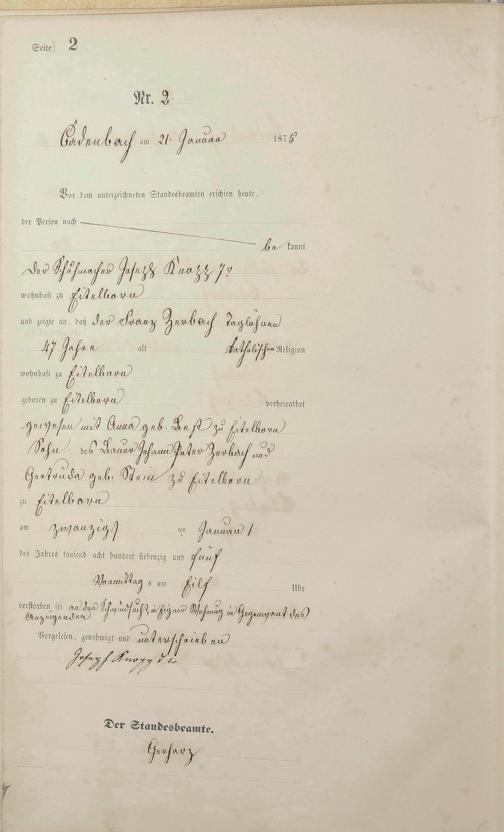 Seite 2
Nr. 2
Cadenbach am 21. Januar 1875
Vor dem unterzeichneten Standesbeamten erschien heute,
der Person nach
be kannt
der Schuhmacher Joseph Knopp
wohnhaft zu Eitelborn
und zeigte an, daß der Franz Zerbach Taglöhner
47 Jahre alt katholischer Religion
wohnhaft zu Eitelborn
geboren zu Eitelborn verheirathet
gewesen mit Anna geb. zu Eitelborn
Sohn des Bauer Johann Peter Zerbach und
Gertruda geb. Stein zu Eitelborn
zu Eitelborn
am zwanzigsten Januar
des Jahres tausend acht hundert siebenzig und fünf
Vormittags um Eilf Uhr
verstorben sei an der Schwindsucht in Wohnung in Gegenwart des
Anzeigenden
Vorgelesen, genehmigt und unterschrieben
Joseph Knopp
Der Standesbeamte.
Gerharz